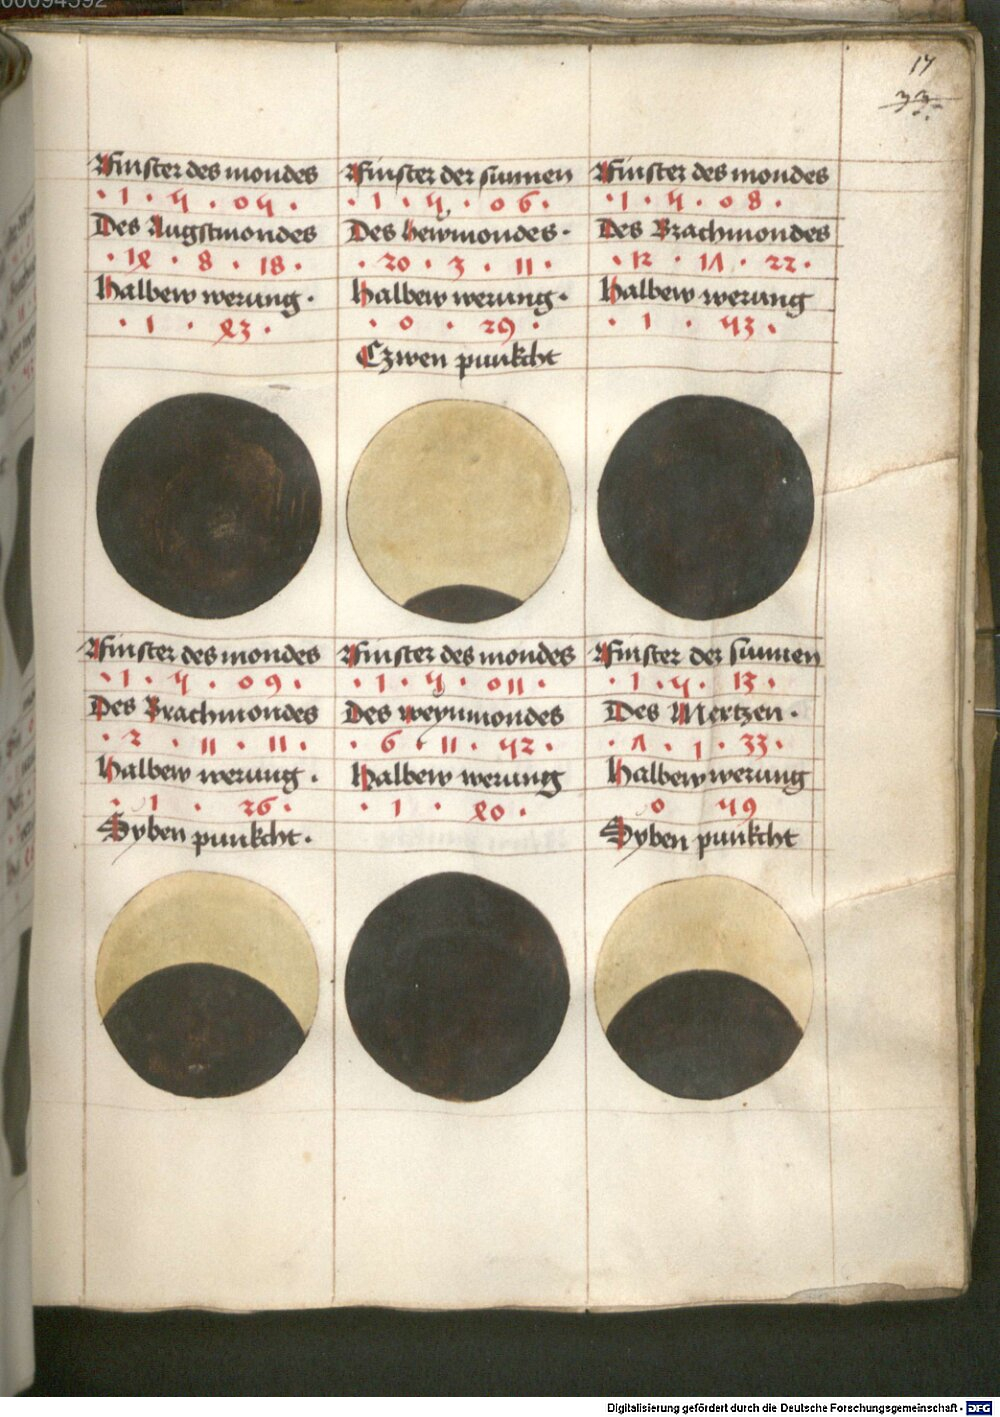 Finster des mondes
· 1 · 5 · 05 ·
Des Augstmondes
· 14 · 8 · 18 ·
halbew werung ·
· 1 · 43 ·
Finster der sunnen
· 1 · 5 · 06 ·
Des hewmondes ·
· 20 · 3 · 11 ·
halbew werung ·
· 0 · 29 ·
Czwen punkcht
Finster des mondes
· 1 · 5 · 08 ·
Des Brachmondes
· 12 · 17 · 22 ·
halbew werung
· 1 · 53 ·
Finster des mondes
· 1 · 5 · 09 ·
Des Brachmondes
· 2 · 11 · 11 ·
halbew werung ·
· 1 · 26 ·
Syben punkcht ·
Finster des mondes
· 1 · 5 · 011 ·
Des weynmondes
· 6 · 11 · 52 ·
halbew werung
· 1 · 40 ·
Finster der sunnen
· 1 · 5 · 13 ·
Des Mertzen ·
· 7 · 1 · 33 ·
halbew werung
0 59
Syben punkcht
17
33
Digitalisierung gefördert durch die Deutsche Forschungsgemeinschaft - DFG